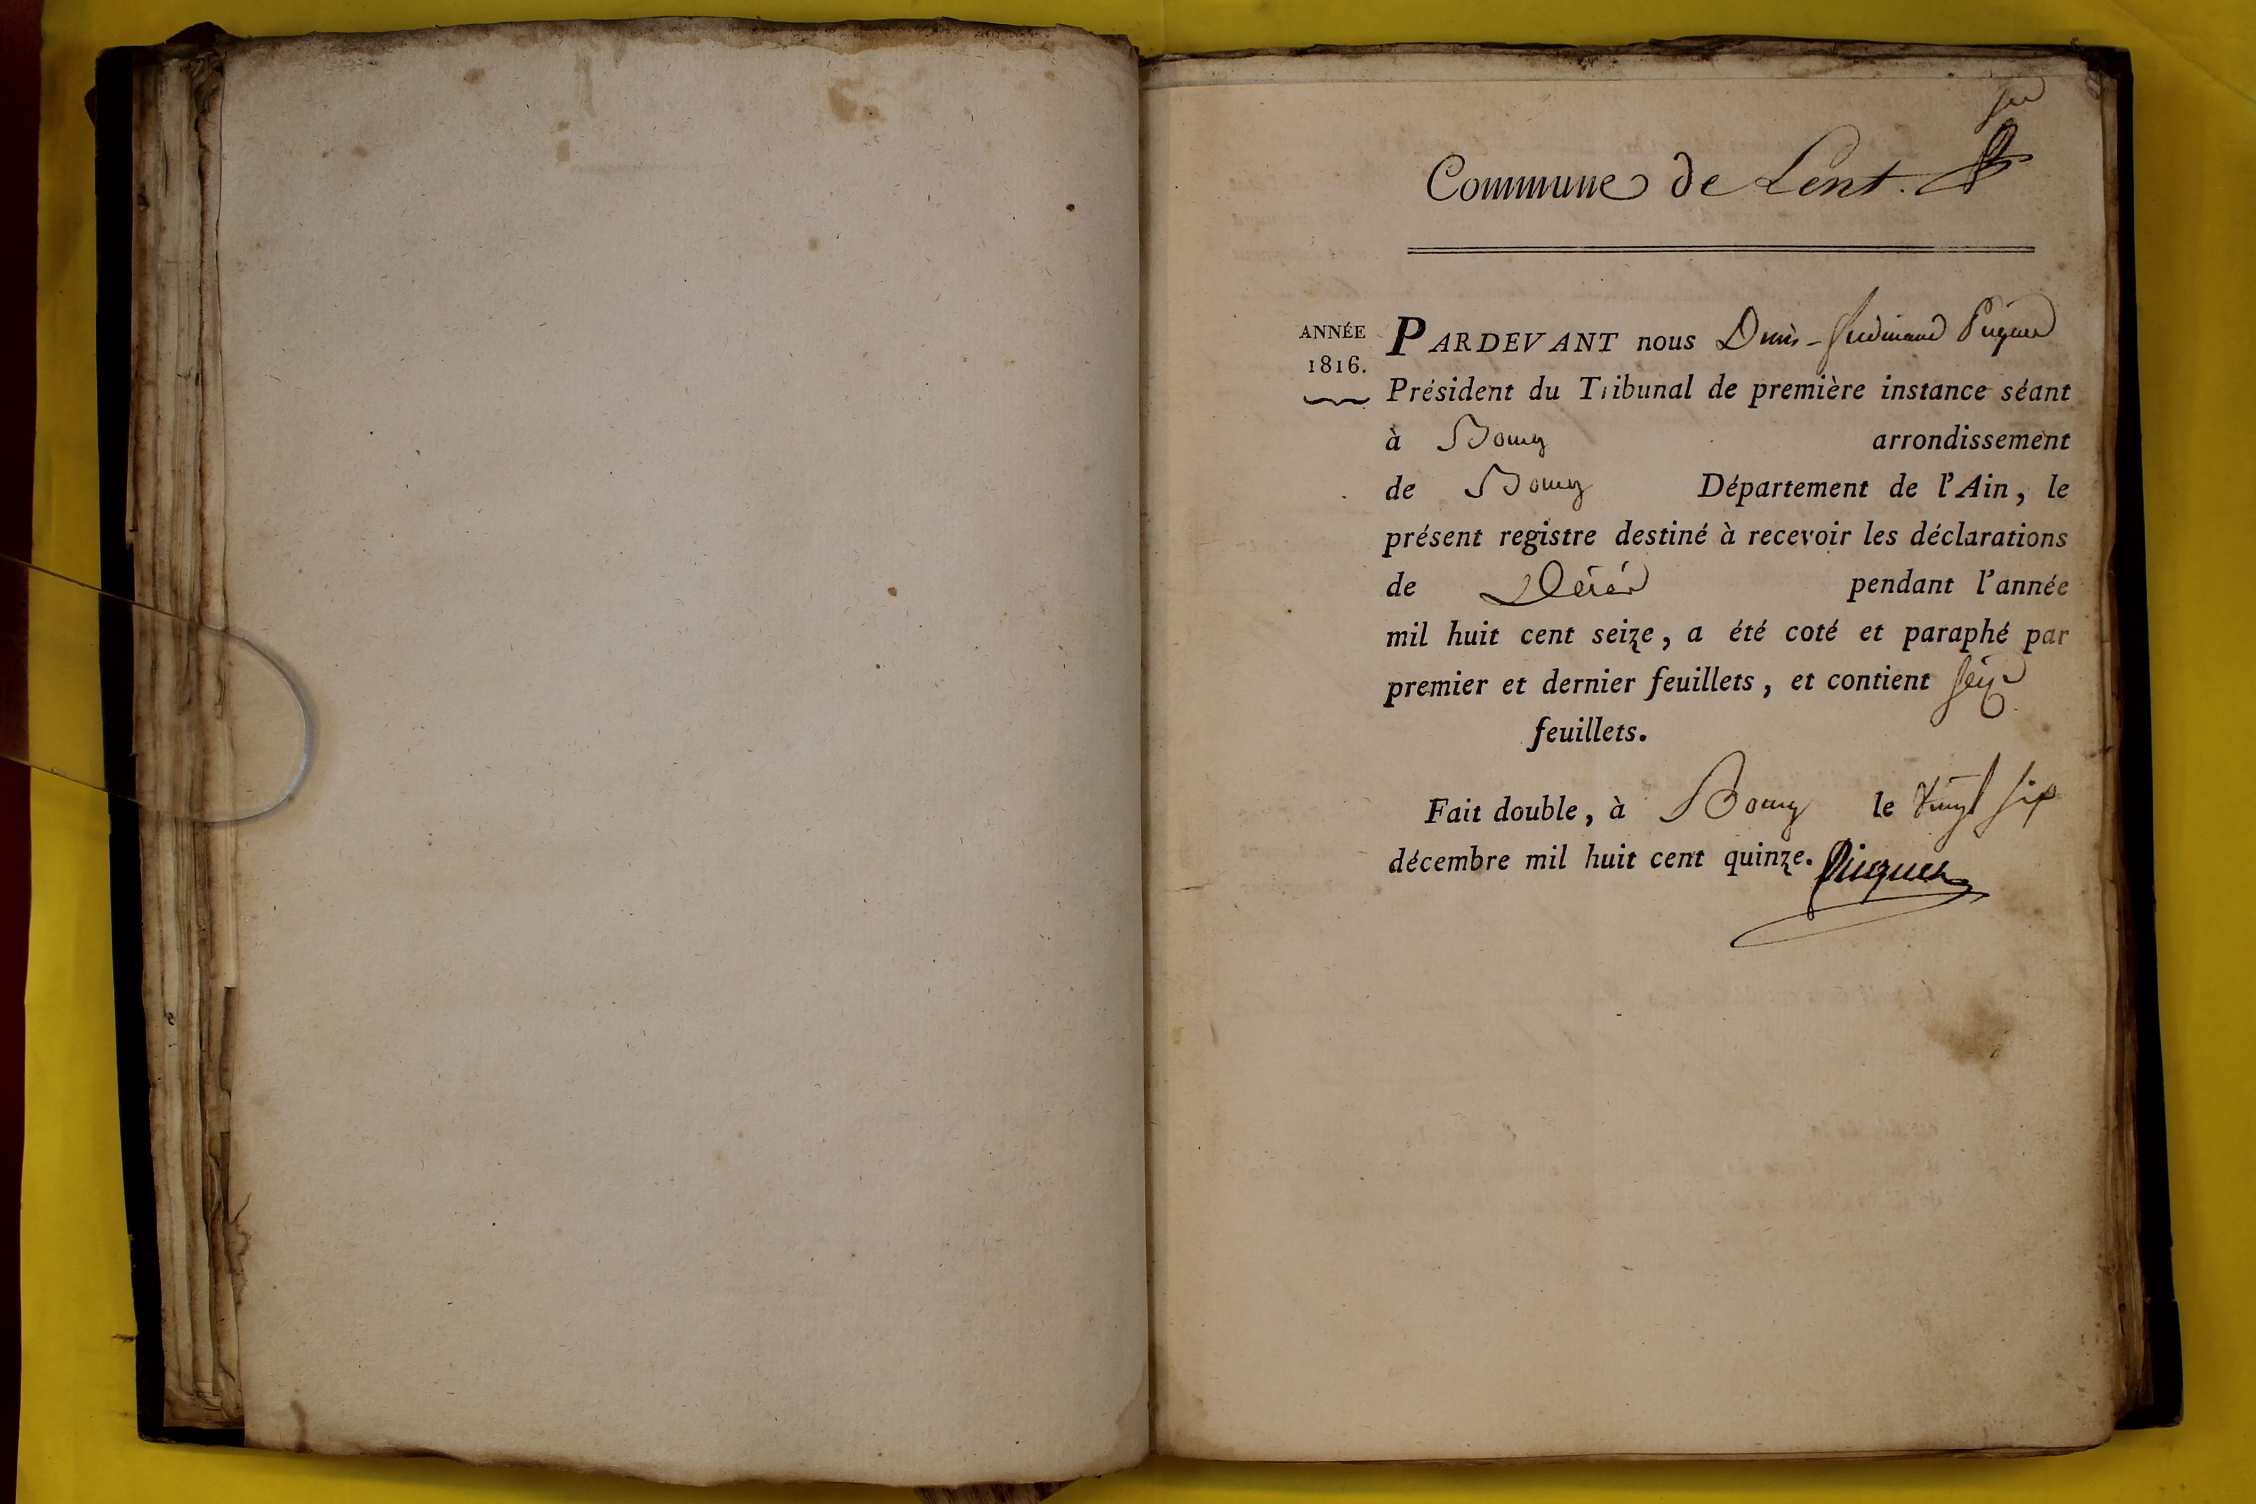 Commune de Lent.
ANNÉE
1816.
PARDEVANT nous Denis-Ferdinand Piquet
Président du Tribunal de première instance séant
à Bourg arrondissement
de Bourg Département de l'Ain, le
présent registre destiné à recevoir les déclarations
de Décès pendant l'année
mil huit cent seize, a été coté et paraphé par
premier et dernier feuillets, et contient seize
feuillets.
Fait double, à Bourg le vingt six
décembre mil huit cent quinze. Piquet